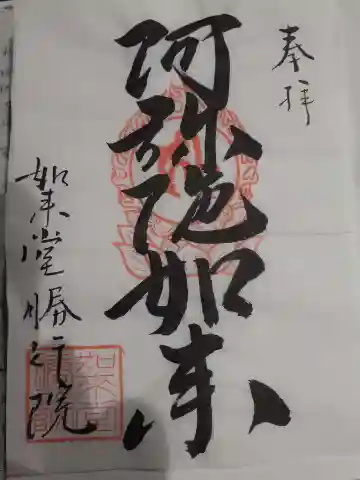 奉拝
阿弥陀如来
如来堂勝行院